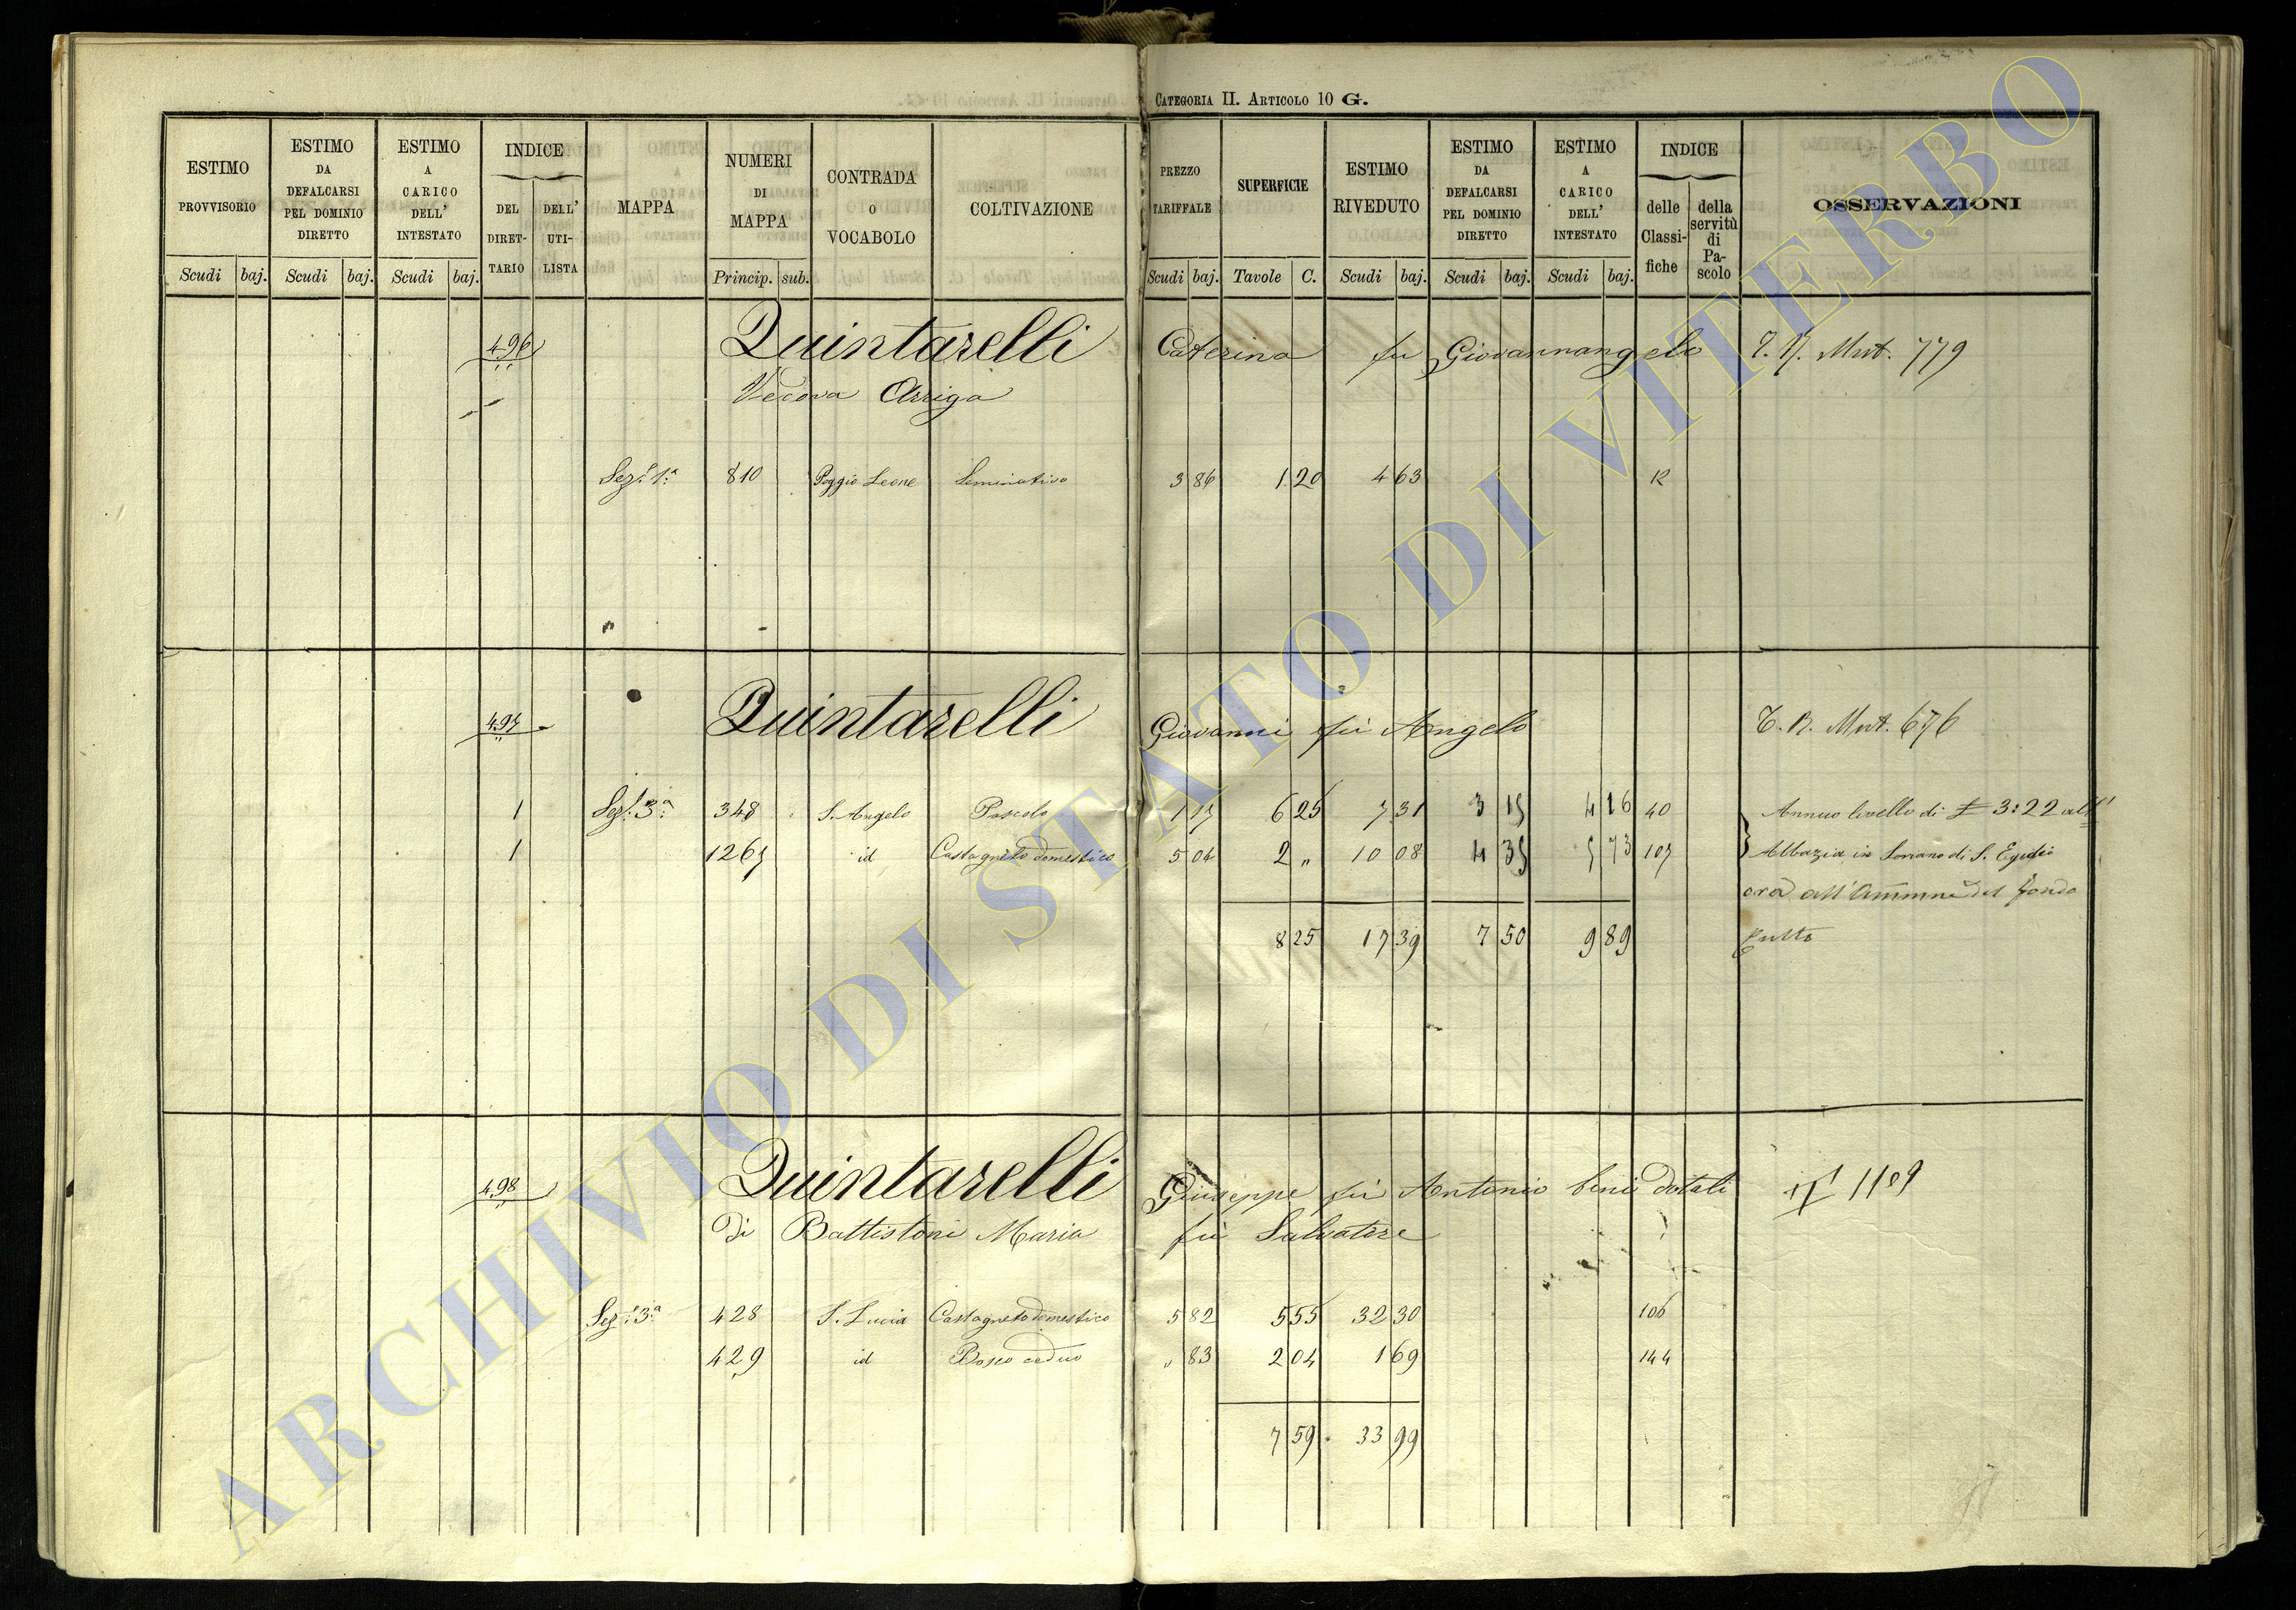 CATEGORIA II. ARTICOLO 10 G.
ESTIMO PROVVISORIO
ESTIMO DA DEFALCARSI PEL DOMINIO DIRETTO
ESTIMO A CARICO DELL' INTESTATO
INDICE
DEL DIRET-TARIO
DELL' UTI-LISTA
MAPPA
NUMERI DI MAPPA
CONTRADA O VOCABOLO
COLTIVAZIONE
PREZZO TARIFFALE
SUPERFICIE
ESTIMO RIVEDUTO
ESTIMO DA DEFALCARSI PEL DOMINIO DIRETTO
ESTIMO A CARICO DELL' INTESTATO
INDICE
delle Classi-fiche
della servitù di Pa-scolo
OSSERVAZIONI
Scudi baj. Scudi baj. Scudi baj. Princip. sub. Scudi baj. Tavole C. Scudi baj. Scudi baj. Scudi baj.
496 Quintarelli Caterina fu Giovannangelo Mut. 779
Vedova Arriga
Sez. 1ª 810 Poggio Leone Seminativo 3 86 1 20 4 63 12
497 Quintarelli Giovanni fù Angelo Mut. 676
1 Sez. 3ª 348 S. Angelo Pascolo 1 17 6 25 7 31 3 15 4 16 40 Annuo livello di £ 3:22 all'
1 1267 id Castagneto domestico 5 04 2 " 10 08 4 35 5 73 107 Abbazia in Soriano di S. Egidio
ora all' Ammne del Fondo
8 25 17 39 7 50 9 89 Culto
498 Quintarelli Giuseppe fù Antonio beni dotali 1109
di Battistoni Maria fù Salvatore
Sez. 3ª 428 S. Lucia Castagneto domestico 5 82 5 55 32 30 106
429 id Bosco ceduo " 83 2 04 1 69 144
7 59 33 99
ARCHIVIO DI STATO DI VITERBO